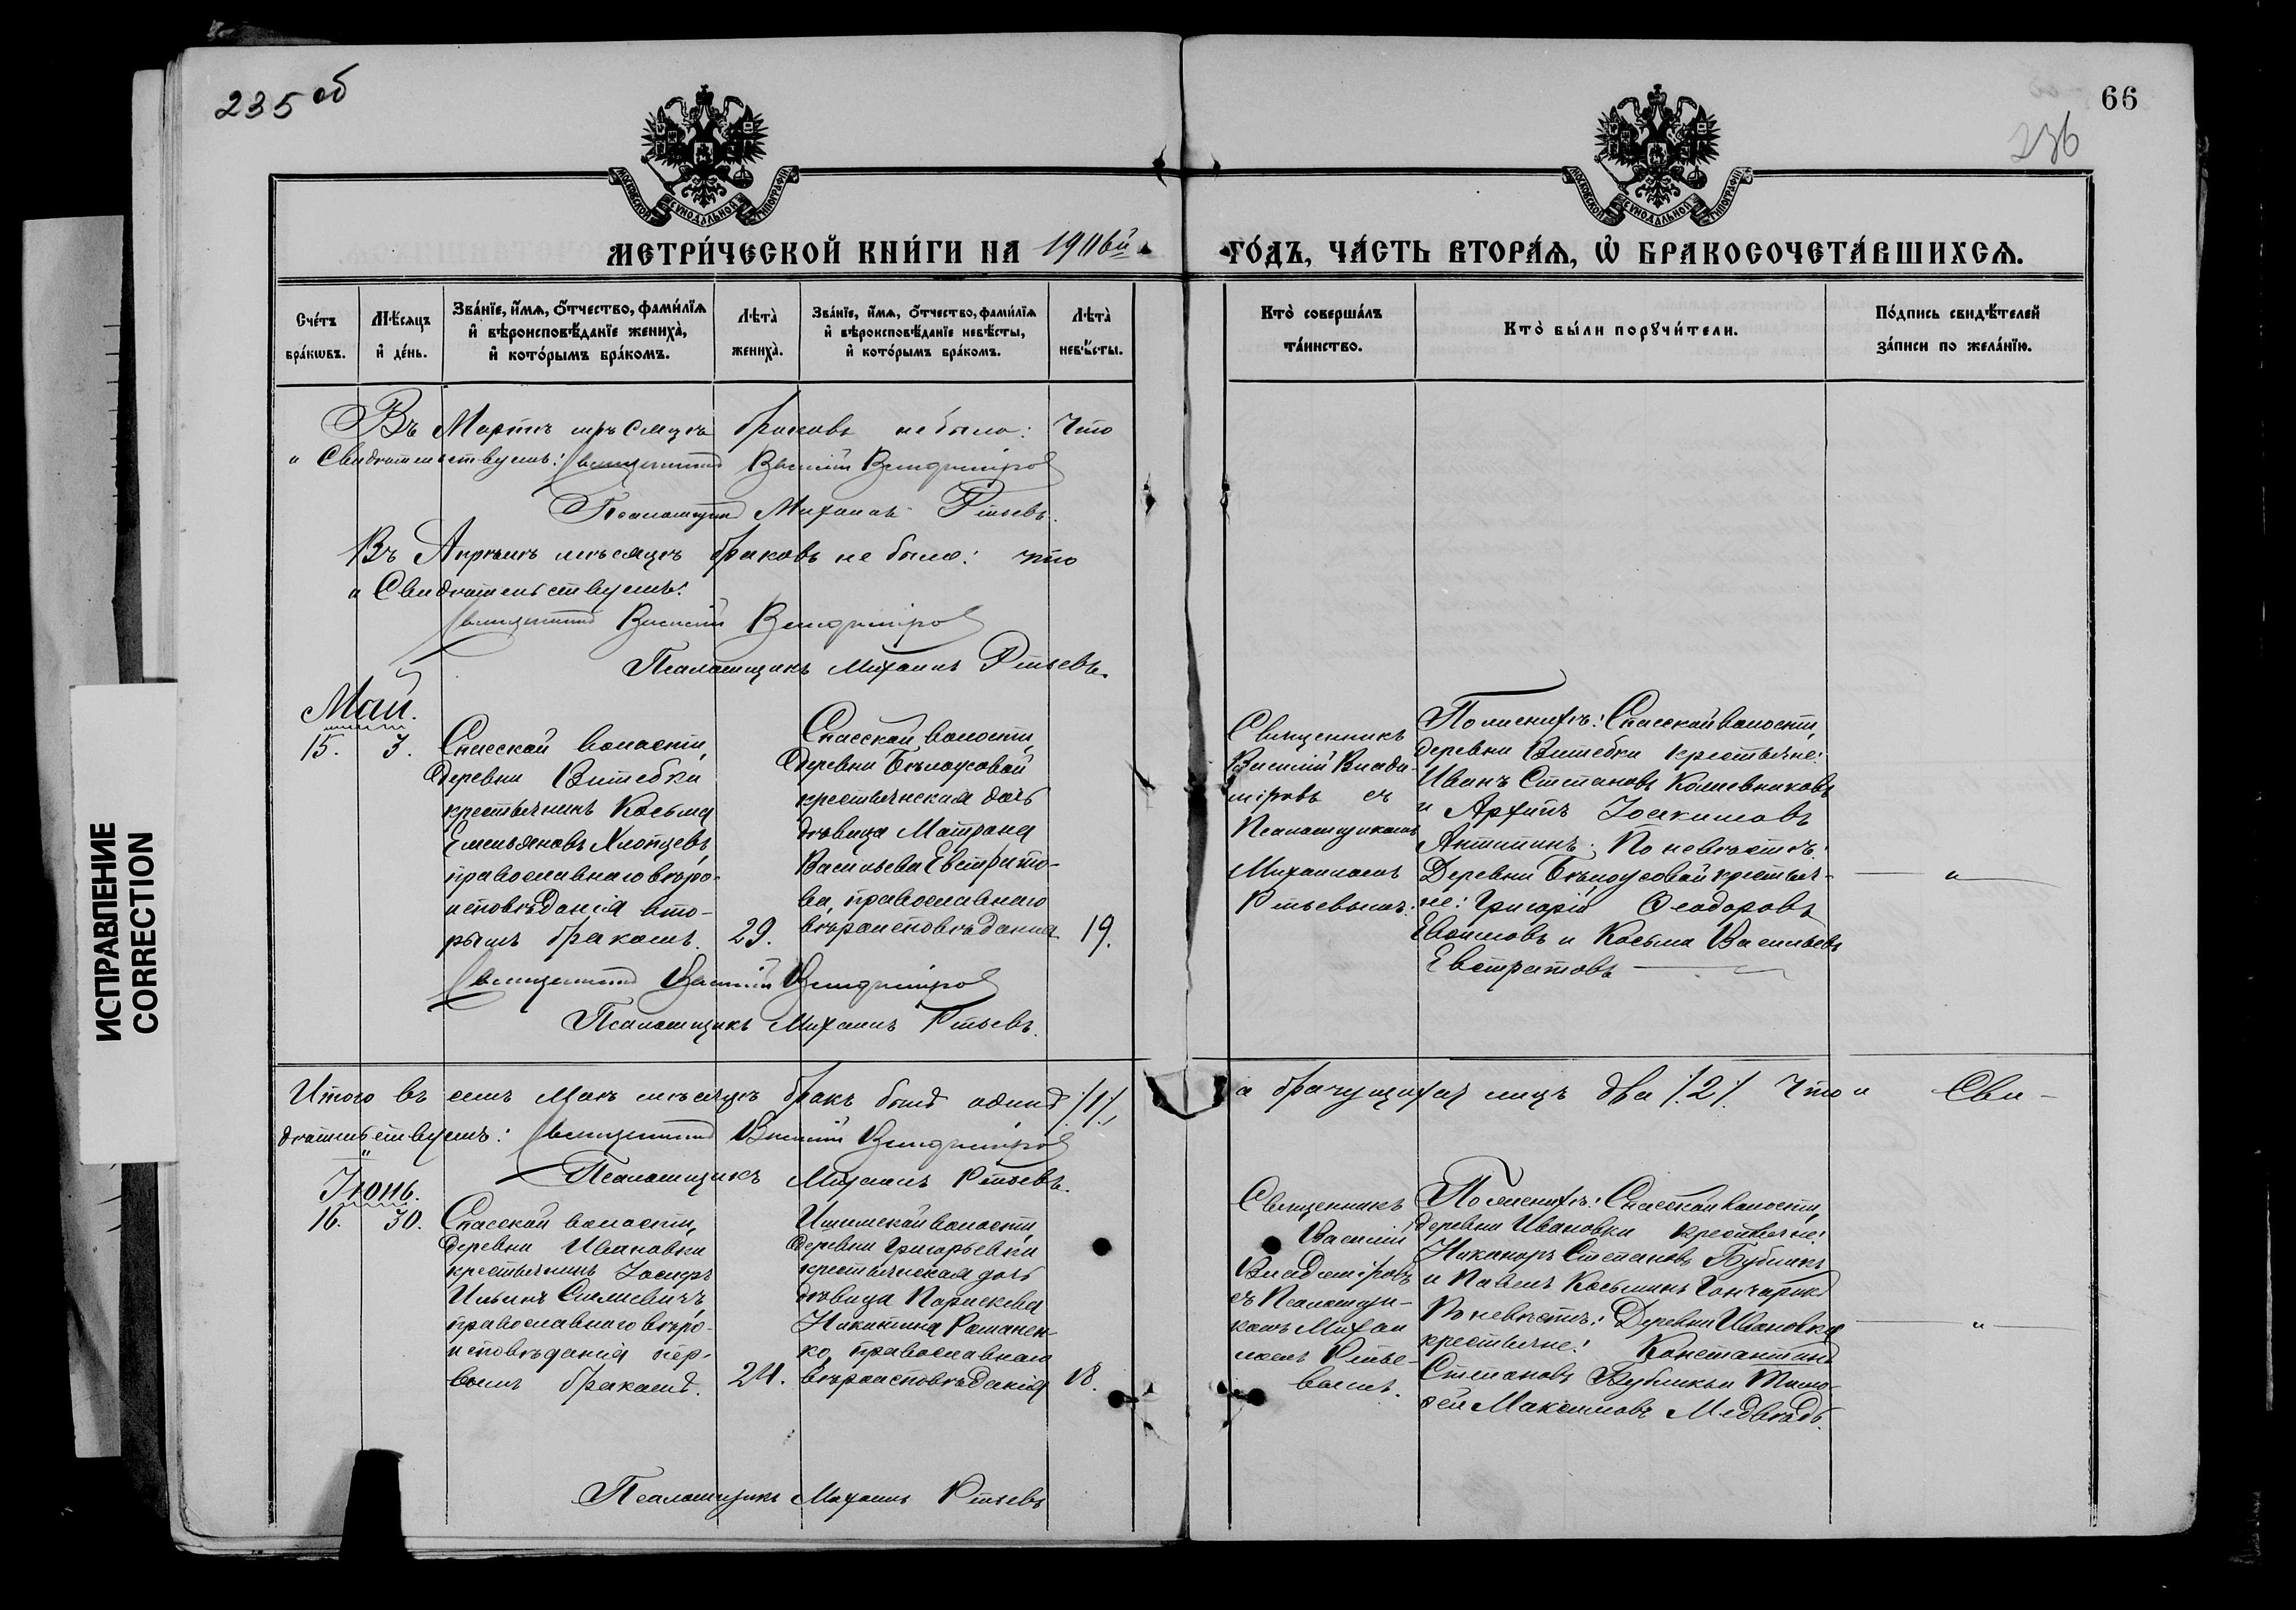 235 об
66
236
МОСКОВСКОЙ СѴНОДАЛЬНОЙ ТИПОГРАФІИ
МОСКОВСКОЙ СѴНОДАЛЬНОЙ ТИПОГРАФІИ
МЕТРИ́ЧЕСКОЙ КНИ́ГИ НА 1906й
ГО́ДЪ, ЧА́СТЬ ВТОРА́Ѧ, Ѽ БРАКОСОЧЕТА́ВШИХСѦ.
Сче́тъ бра́кѡвъ.
Мѣ́сяцъ и҆ де́нь.
Зва́нїе, и҆́мѧ, ѻ҆́тчество, фами́лїѧ и҆ вѣроисповѣ́данїе жениха̀, и҆ кото́рымъ бра́комъ.
Лѣ́та̀ жениха̀.
Зва́нїе, и҆́мѧ, ѻ҆́тчество, фами́лїѧ и҆ вѣроисповѣ́данїе невѣ́сты, и҆ кото́рымъ бра́комъ.
Лѣ́та̀ невѣ́сты.
Кто̀ соверша́лъ та́инство.
Кто̀ бы́ли порꙋчи́тели.
По́дпись свидѣ́телей за́писи по жела́нїю.
Въ Мартѣ мѣсяцѣ браковъ не было: Что
и Свидѣтельствуемъ: Священникъ Василій Владиміров
Псаломщикъ Михаилъ Ртьевъ.
Въ Апрѣлѣ мѣсяцѣ браковъ не было: что
и Свидѣтельствуемъ:
Священникъ Василій Владиміров
Псаломщикъ Михаилъ Ртьевъ.
Май.
15. 3.
Спасской волости,
деревни Витебки
крестьянинъ Косьма
Емельяновъ Хлопцевъ,
православнаго вѣро-
исповѣданія вто-
рымъ бракомъ.
29.
Спасской волости,
деревни Бѣлоусовой
крестьянская дочь
дѣвица Матрона
Васильева Евстрато-
ва, православнаго
вѣроисповѣданія
19.
Священникъ
Василій Влади-
міровъ съ
Псаломщикомъ
Михаиломъ
Ртьевымъ.
По женихѣ: Спасской волости,
деревни Витебки крестьяне:
Иванъ Степановъ Колмевниковъ
и Архипъ Іоакимовъ
Антипинъ; По невѣстѣ:
Деревни Бѣлоусовой крестья-
не: Григорій Ѳеодоровъ
Евоимовъ и Косьма Васильевъ
Евстратовъ
Священникъ Василій Владиміров
Псаломщикъ Михаилъ Ртьевъ.
Итого въ семъ Маѣ мѣсяцѣ бракъ былъ одинъ /1/, а брачущихся лицъ два /2/. Что и Сви-
дѣтельствуемъ: Священникъ Василій Владиміров
Псаломщикъ Михаилъ Ртьевъ.
Іюнь.
16. 30.
Спасской волости,
деревни Ивановки
крестьянинъ Іосифъ
Ильинъ
православнаго вѣро-
исповѣданія пер-
вымъ бракомъ.
24.
Ишимской волости,
деревни Григорьевки
крестьянская дочь
дѣвица Параскева
Никитина Романен-
ко, православнаго
вѣроисповѣданія
18.
Священникъ
Василій
Владиміровъ
съ Псаломщи-
комъ Михаи
ломъ Ртье-
вымъ.
По женихѣ: Спасской волости,
деревни Ивановки крестьяне:
Никаноръ Степановъ Бубликъ
и Павелъ Косьминъ Гончарикъ
По невѣстѣ: Деревни Ивановки
крестьяне: Константинъ
Степановъ Бубликъ и Тимо-
ѳей Максимовъ Медвѣдь.
Псаломщикъ Михаилъ Ртьевъ
ИСПРАВЛЕНИЕ
CORRECTION